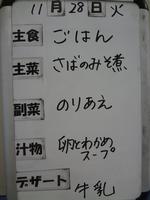 11月28日火
主食 ごはん
主菜 さばのみそ煮
副菜 のりあえ
汁物 卵とわかめ
スープ
デザート 牛乳